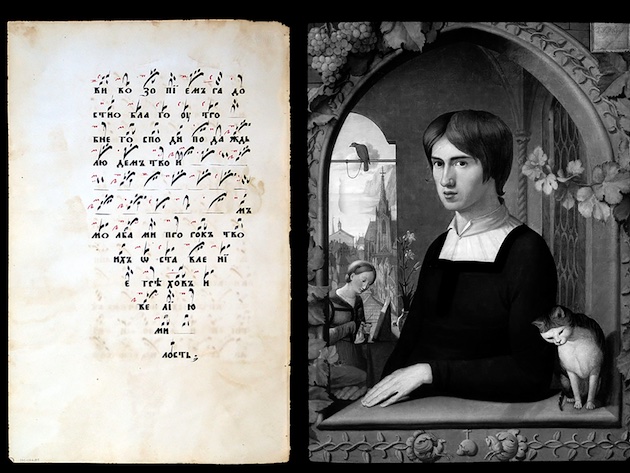 ви ко зо пі емъ га до
стно бла го оу тро
бие го спо ди по да ждь
лю демъ тво и
мъ
мо лба ми про рокъ тво
ихъ ѡ ста вле нї
е грѣ ховъ и
ве лї ю
ми
лость ;